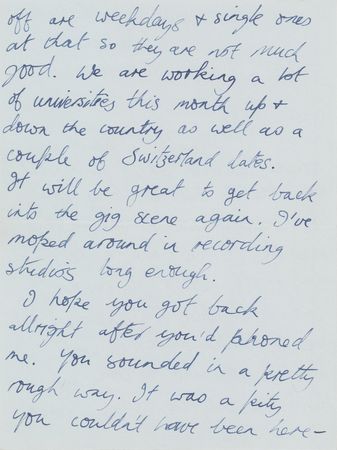 off are weekdays + single ones
at that so they are not much
good. We are working a lot
of universities this month up +
down the country as well as a
couple of Switzerland dates.
It will be great to get back
into the gig scene again. I've
moped around in recording
studios long enough.
I hope you got back
allright after you'd phoned
me. You sounded in a pretty
rough way. It was a pity
you couldn't have been here-